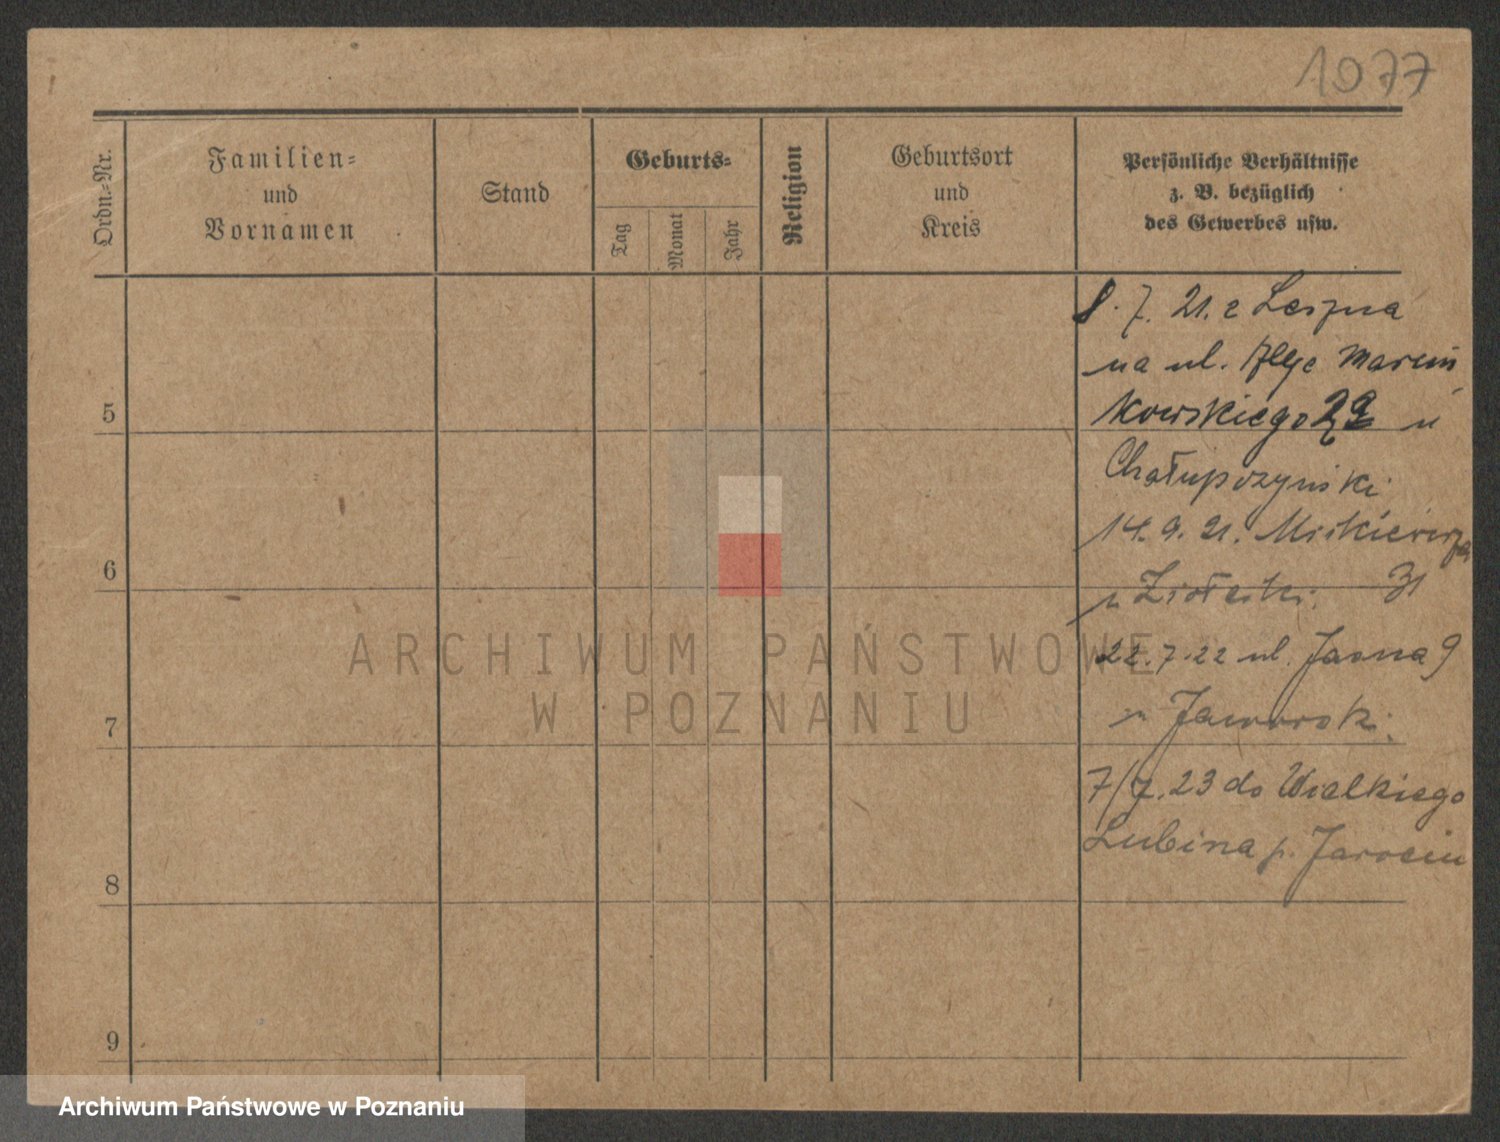 1077
Ordn.=Nr.
Familien=
und
Vornamen
Stand
Geburts=
Tag
Monat
Jahr
Religion
Geburtsort
und
Kreis
Persönliche Verhältnisse
z. B. bezüglich
des Gewerbes usw.
8. 7. 21. z Leszna
na ul. Marcin
kowskiego 29 u
Chałupczyński
5
14. 9. 21.
6
u 31
22. 7. 22 ul. Jasna 9
u Jaworski.
7
7/7. 23 do Wielkiego
Lubina p. Jarocin
8
9
ARCHIWUM PAŃSTWOWE
W POZNANIU
Archiwum Państwowe w Poznaniu